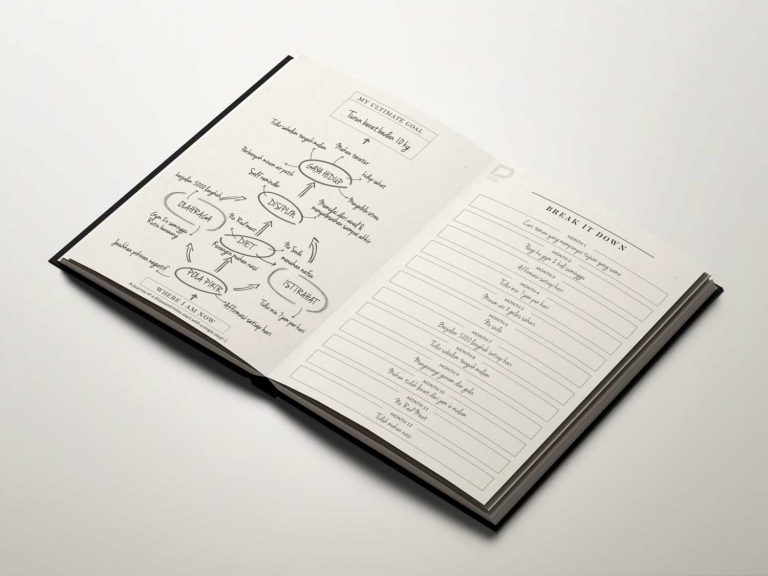 MY ULTIMATE GOAL
Turun berat badan 10 kg
Tidur sebelum tengah malam
Makan teratur
Perbanyak minum air putih
GAYA HIDUP
hidup sehat
Self reminder
Mengelola stres
berjalan 5000 langkah
DISIPLIN
Memulai dari awal &
menyelesaikan sampai akhir
OLAHRAGA
No Red meat
Gym 2x seminggu
DIET
No Soda
Kurangin makan nasi
menahan nafsu
Jauhkan pikiran negatif
POLA PIKIR
ISTIRAHAT
Tidur min. 7 jam per hari
Afirmasi setiap hari
WHERE I AM NOW
A journey of a thousand miles start with a single step! :)
BREAK IT DOWN
MONTH 1
Cari teman yang mempunyai tujuan yang sama
MONTH 2
Pergi ke gym 2 kali seminggu
MONTH 3
Afirmasi setiap hari
MONTH 4
Tidur min. 7 jam per hari
MONTH 5
Minum air 8 gelas sehari
MONTH 6
No soda
MONTH 7
Berjalan 5000 langkah setiap hari
MONTH 8
Tidur sebelum tengah malam
MONTH 9
Mengurangi garam dan gula
MONTH 10
Makan tidak lewat dari jam 6 malam
MONTH 11
No Red Meat
MONTH 12
Tidak makan nasi